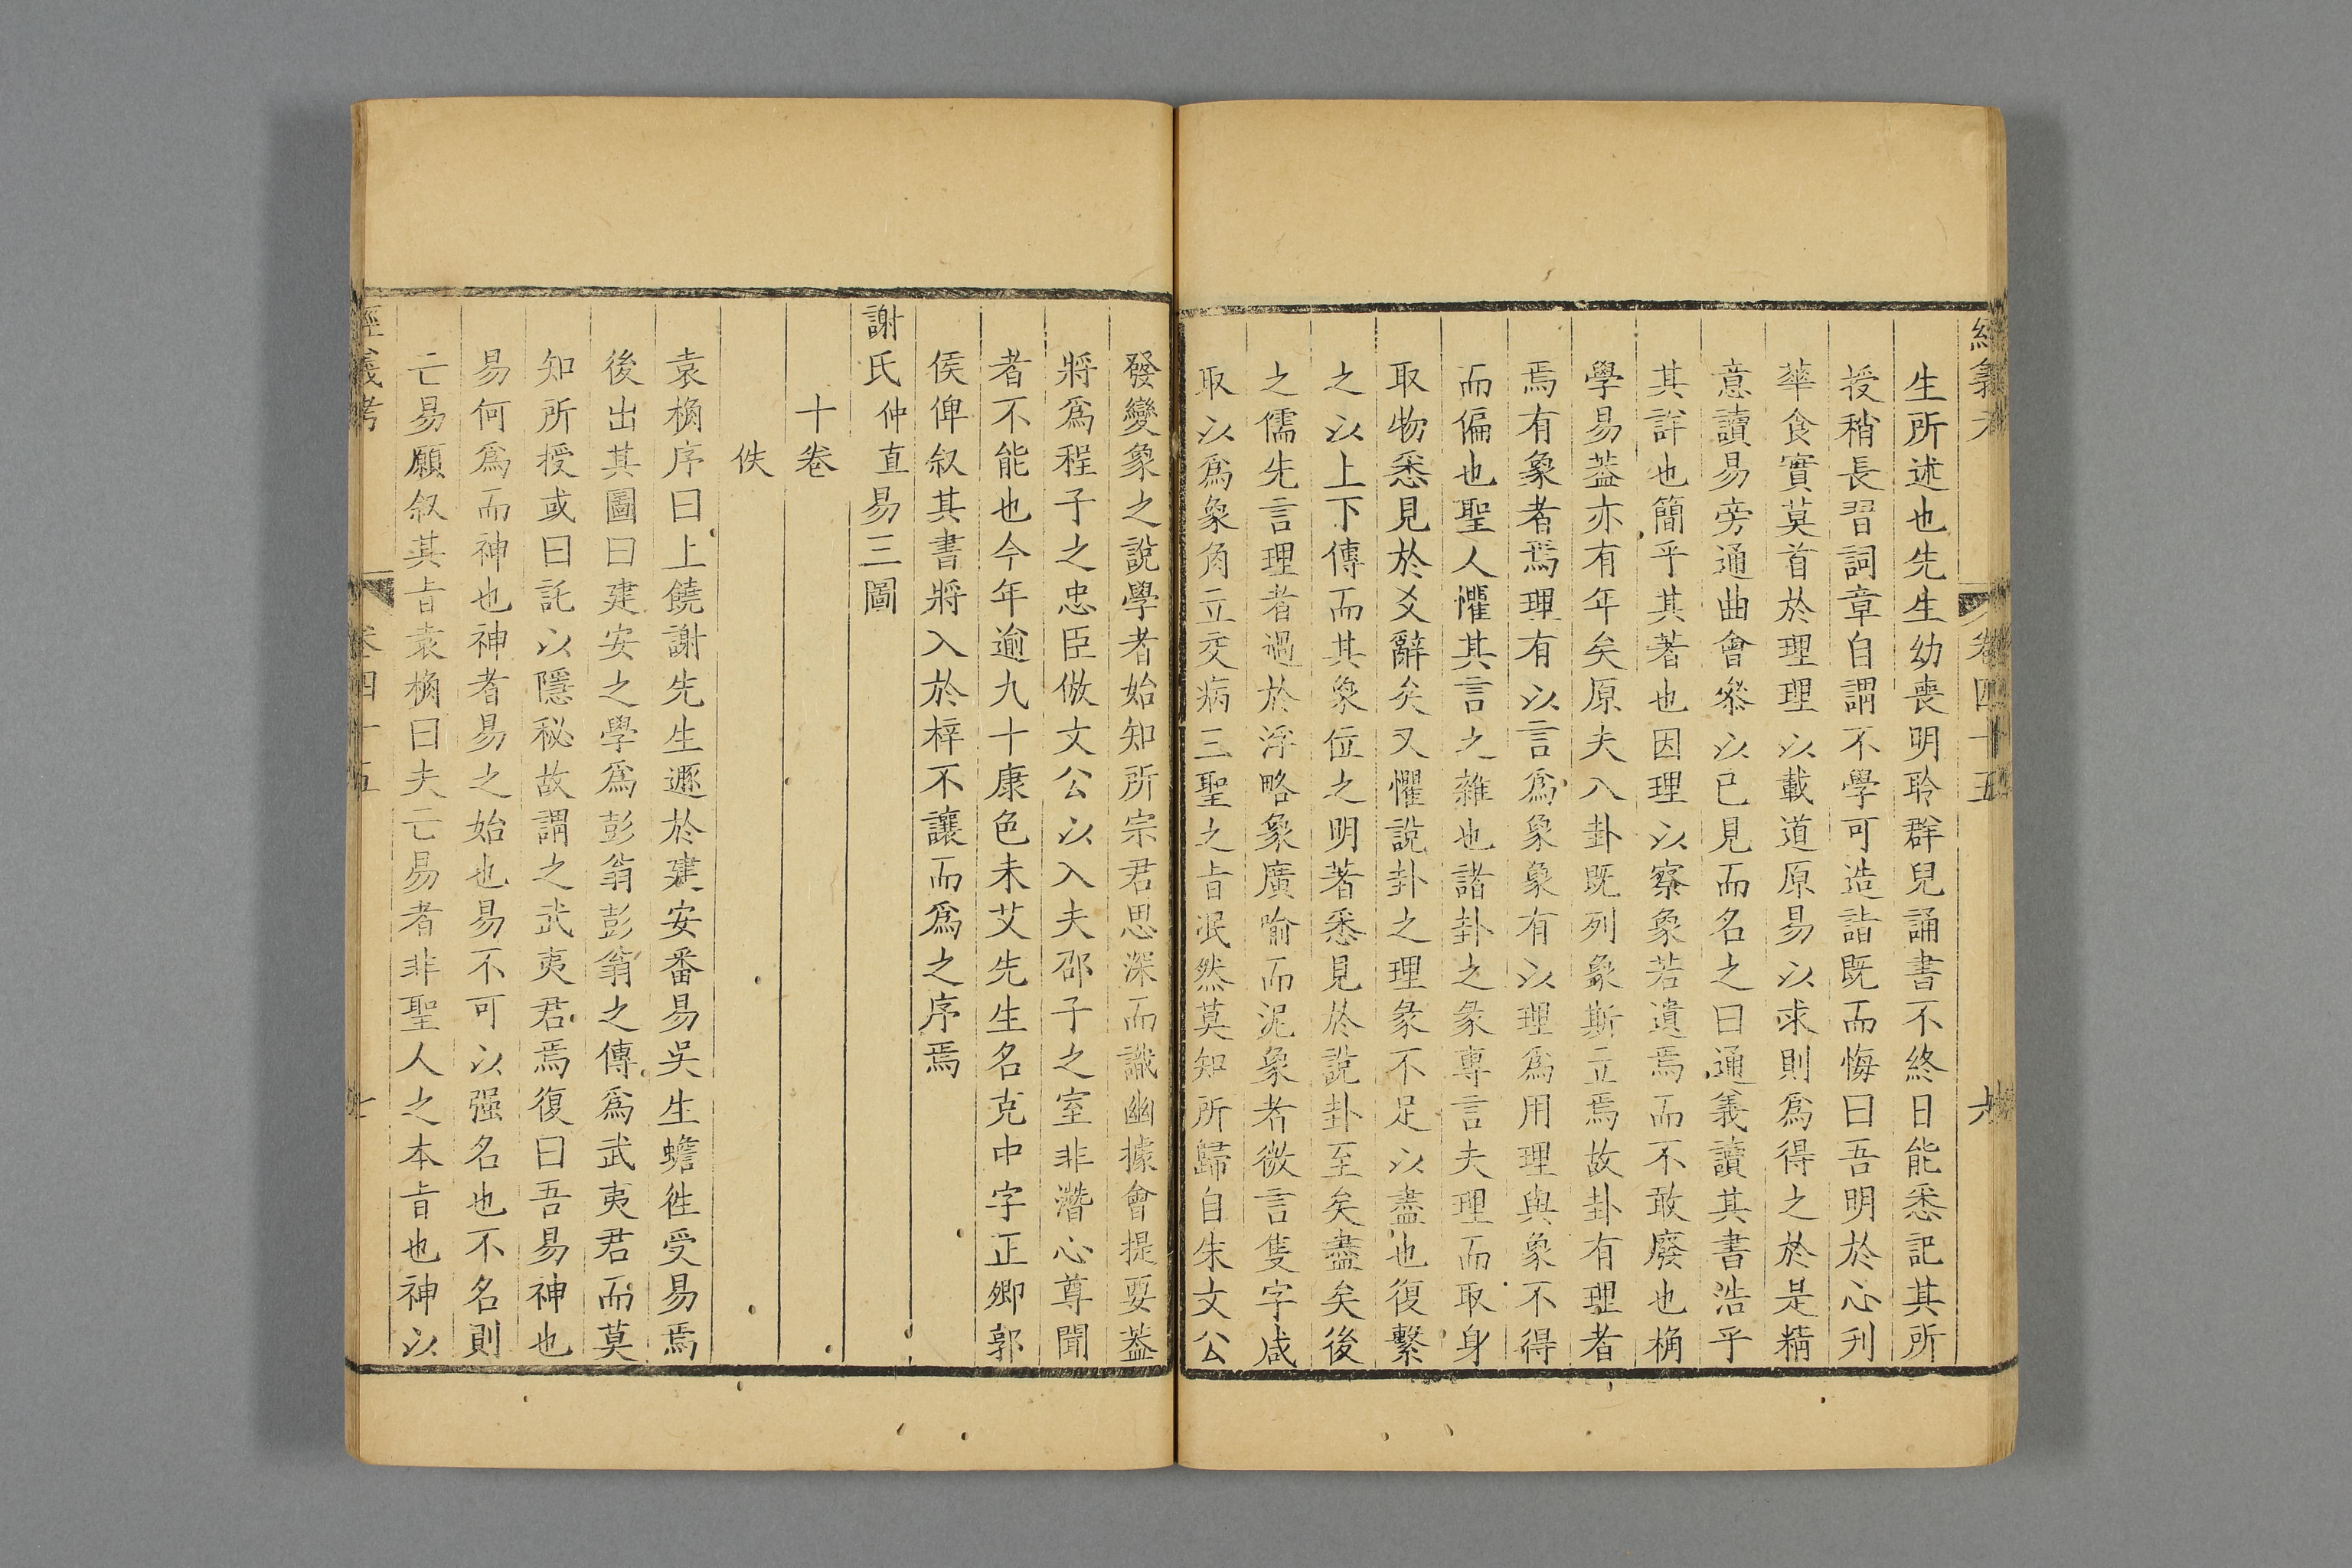 經義考 卷四十五
生所述也先生幼喪明聆群兒誦書不終日能悉記其所
授稍長習詞章自謂不學可造詣既而悔曰吾明於心刋
華食實莫首於理理以載道原易以求則爲得之於是精
意讀易旁通曲會叅以已見而名之曰通義讀其書浩乎
其詳也簡乎其著也因理以察象若遺焉而不敢廢也桷
學易葢亦有年矣原夫八卦既列象斯立焉故卦有理者
焉有象者焉理有以言爲象象有以理爲用理與象不得
而偏也聖人懼其言之雜也諸卦之彖專言夫理而取身
取物悉見於爻辭矣又懼說卦之理彖不足以盡也復繫
之以上下傳而其象位之明著悉見於說卦至矣盡矣後
之儒先言理者過於浮略象廣喻而泥象者微言隻字咸
取以爲象角立交病三聖之旨泯然莫知所歸自朱文公
發變象之說學者始知所宗君思深而識幽據會提要葢
將爲程子之忠臣倣文公以入夫邵子之室非潛心尊聞
者不能也今年逾九十康色未艾先生名克中字正卿郭
侯俾叙其書將入於梓不讓而爲之序焉
謝氏仲直易三圖
十卷
佚
袁桷序曰上饒謝先生遯於建安番易吳生蟾徃受易焉
後出其圖曰建安之學爲彭翁彭翁之傳爲武夷君而莫
知所授或曰託以隱秘故謂之武夷君焉復曰吾易神也
易何爲而神也神者易之始也易不可以强名也不名則
亡易願叙其旨袁桷曰夫亡易者非聖人之本旨也神以
經義考 卷四十五 七